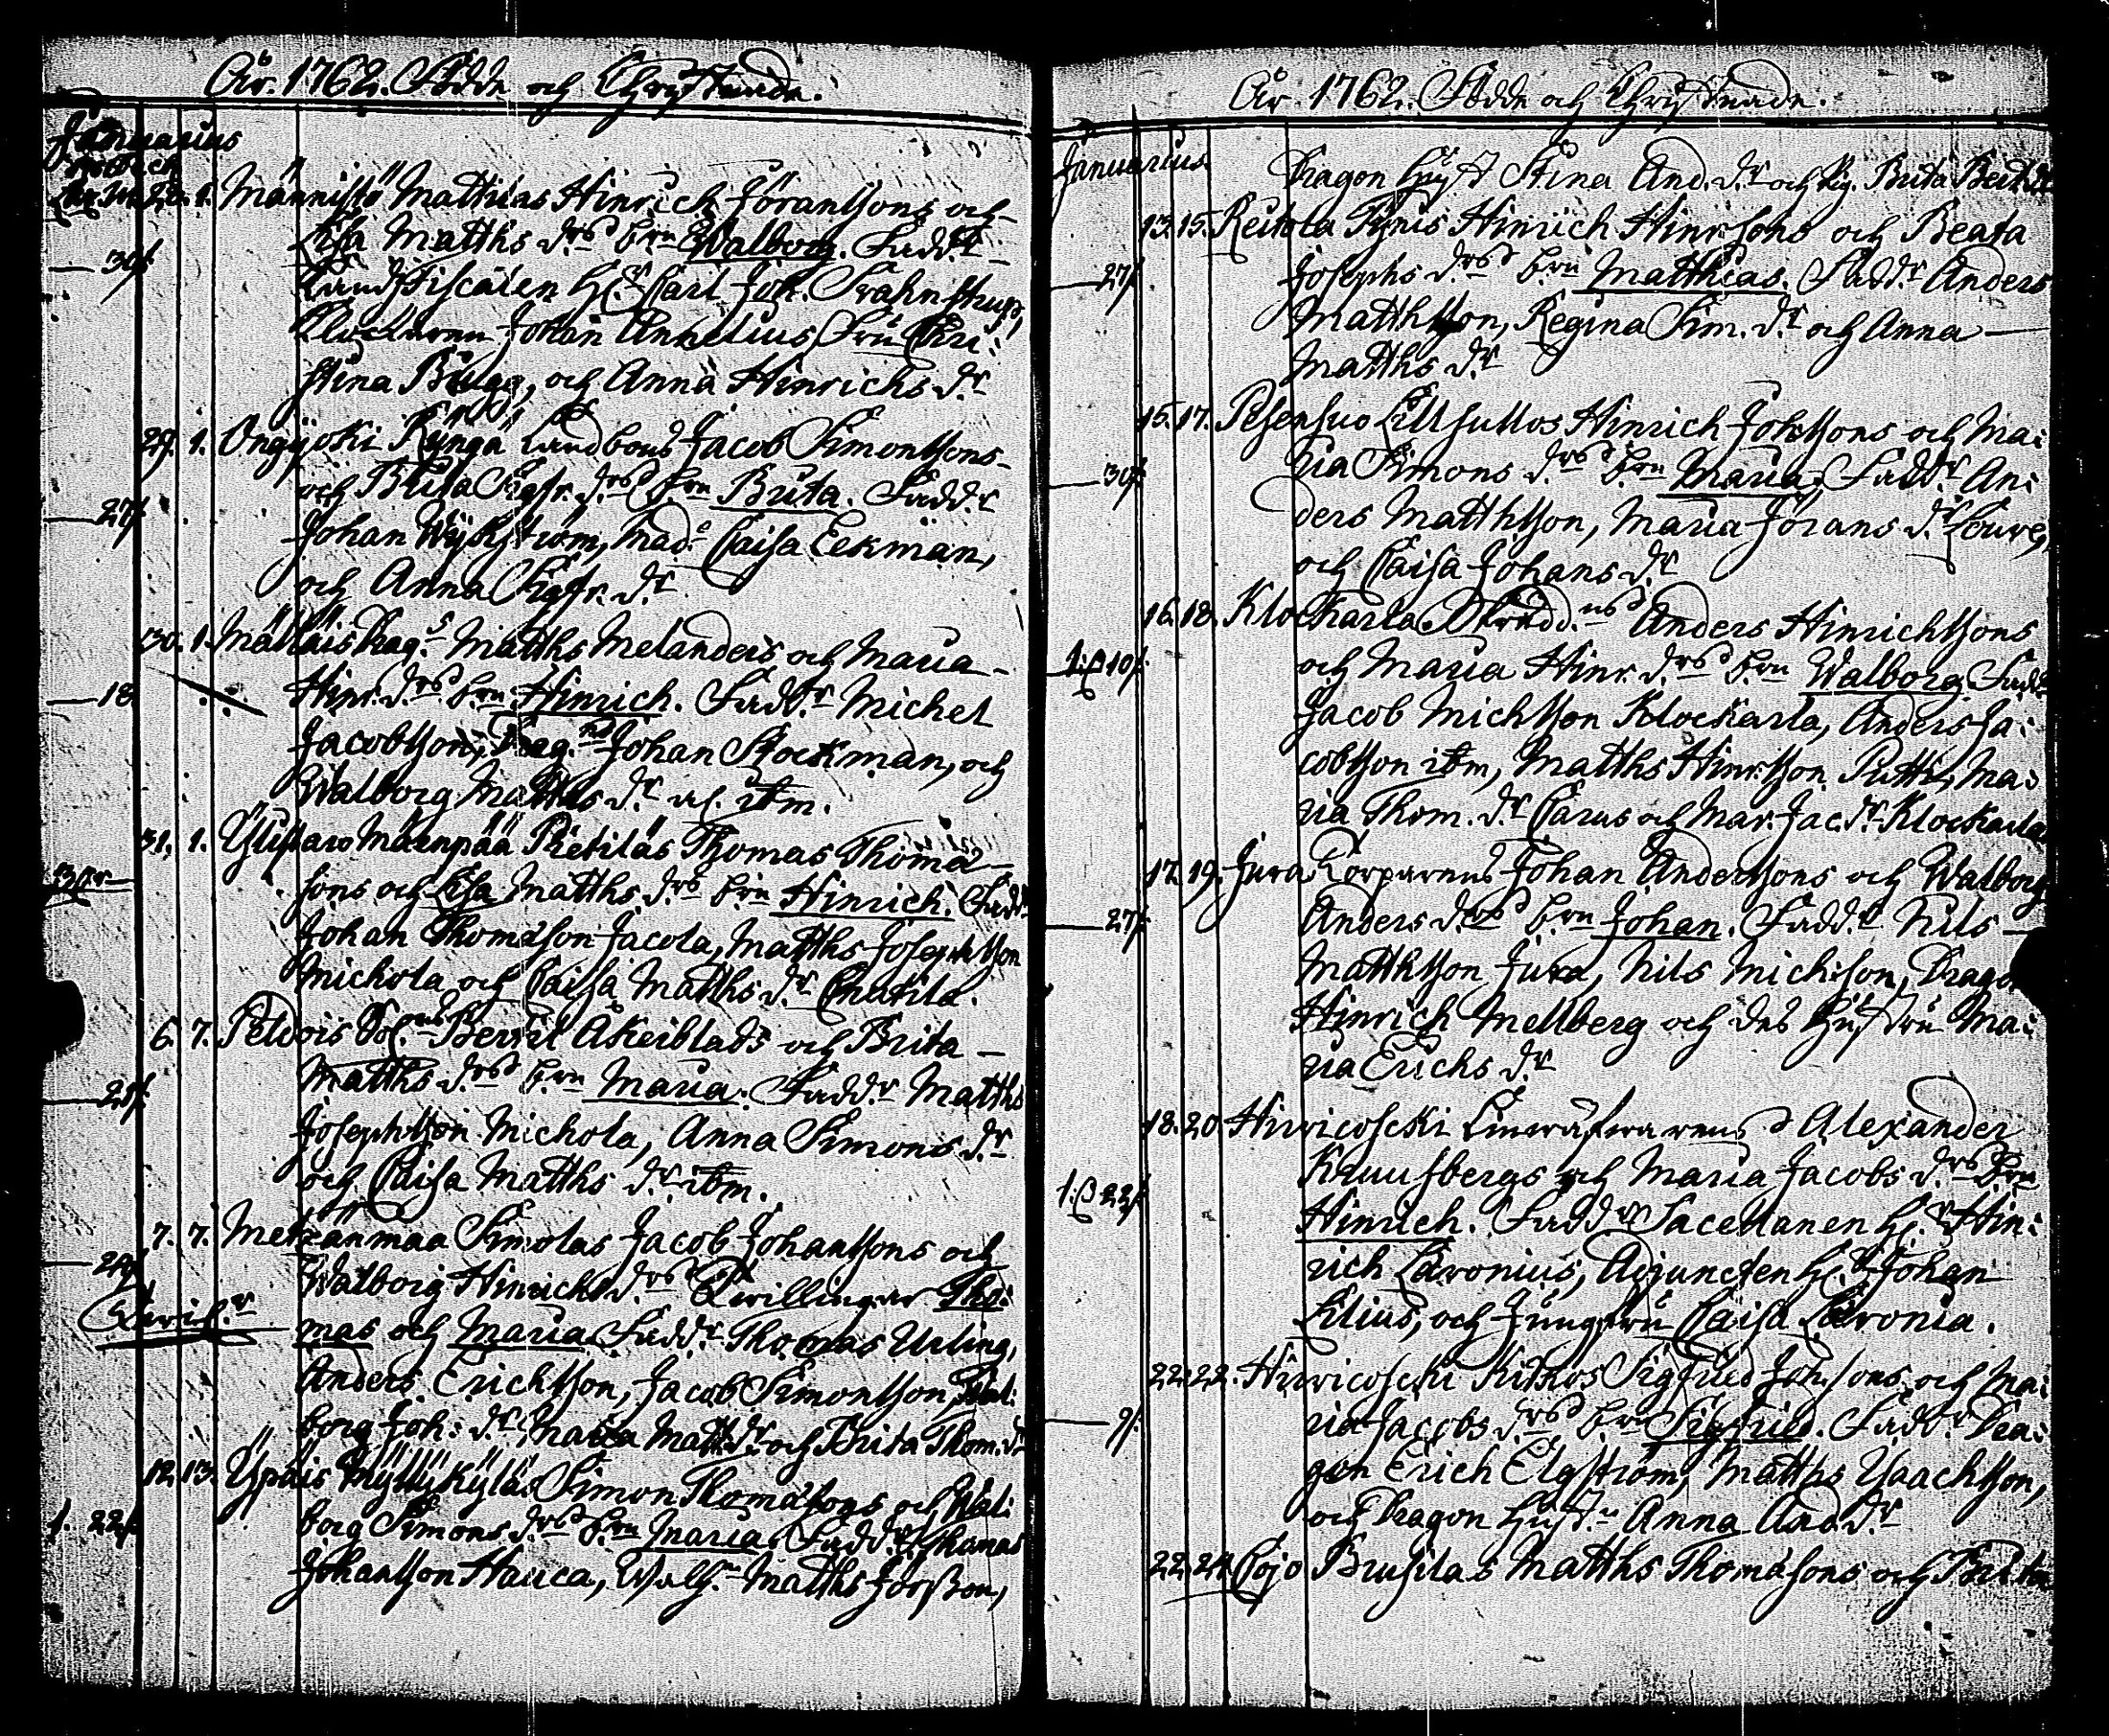 År. 1762. Födde och Christnade.
Januarius
28. 1. Männistö Matthias Hinrich Jöranssons och
Lisa Matths drs brn Walborg. Fadd.r
30/.
Landtfiscalen H.r Carl Joh.
Klockaren Johan Annelius, Fru Chri:
stina Bulgg, och Anna Hinrichs d.r
29. 1. Ongijoki Rÿngä Landbons Jacob Simonssons
och Brita Sigfr. drs brn Brita. Fadd.r
27/.
Johan Wijkström, Mad.e Caisa Eekman,
och Anna Sigfr. d.r
30. 1. Mälläis Drag.s Matths Melanders och Maria
18
Hinr. drs brn Hinrich. Fadd.r Michel
Jacobsson, Drag.ns Johan Stockman, och
Walborg Matths d.r itm.
31. 1. Ylistaro Mäenpää Pietiläs Thomas Thoma
sons och Lisa Matths drs brn Hinrich. Fadd.r
Johan Thomason Jacola, Matths Josephsson
Michola och Caisa Matths d.r
6. 7. Peldois Sol. Bertil Åkerblads och Brita
Matths drs brn Maria. Fadd.r Matths
21/.
Josephsson Michola, Anna Simons d.r
och Caisa Matths d.r itm.
7. 7. Metzänmaa Simolas Jacob Johanssons och
Walborg Hinrichs drs Twillingar Tho:
mas och Maria. Fadd.r Thomas Urling,
Anders Erichsson, Jacob Simonsson Wal:
borg Joh: d.r, Maria Matt. dr och Brita Thom. d.r
12. 13. Ÿpäis Mÿllÿkÿläs Simon Thomasons och Wal:
1. 22/.
borg Simons drs brn Maria. Fadd.r Thomas
Johansson Hauca, Matths Jörsson,
År 1762. Födde och Christnade.
Januarius
Dragon Hust. Stina And. d.r och Pig. Brita Bert. dr
13. 15. Reitola Pÿris Hinrich Hinrsons och Beata
Josephs drs brn Matthias. Fadd.r Anders
27/.
Matthsson, Regina Sim. d.r och Anna
Matths d.r
15. 17. Pesensuo Lillsullos Hinrich Johssons och Ma:
ria Simons drs brn Maria. Fadd.r An:
30/.
ders Matthsson, Maria Jörans d.r
och Caisa Johans d.r
16. 18. Klockarla Skrädd.ns Anders Hinrichssons
och Maria Hinr. drs brn Walborg Fadd.r
10/.
Jacob Michsson Klockarla, Anders Ja:
cobsson itm, Matths Hinrsson Putti, Ma:
ria Thom. d.r och Mar. Jac. d.r Klockarla
17. 19. Jura Torparens Johan Anderssons och Walborg
Anders drs brn Johan. Fadd.r Nils
27/.
Matthsson Jura, Nils Michsson, Dragon
Hinrich Mellberg och des Hustru Ma:
ria Erichs d.r
18. 20. Hirvicoscki Alexander
Kruusbergs och Maria Jacobs drs brn
22/.
Hinrich. Fadd.r Sacellanen H.r Hin:
rich Lavonius, Adjuncten H.r Johan
Lilius, och Jungfru Caisa Lavonia.
22. 22. Hirvicoscki Kithos Sigfried Joh.sons och Ma:
ria Jacobs drs brn Sigfried. Fadd.r Dra:
9/.
gon Erich Elgström, Matths Ysaachsson,
och Dragon Hust. Anna And. d.r
22. 24. Cojo Brusilas Matths Thomasons och Brita